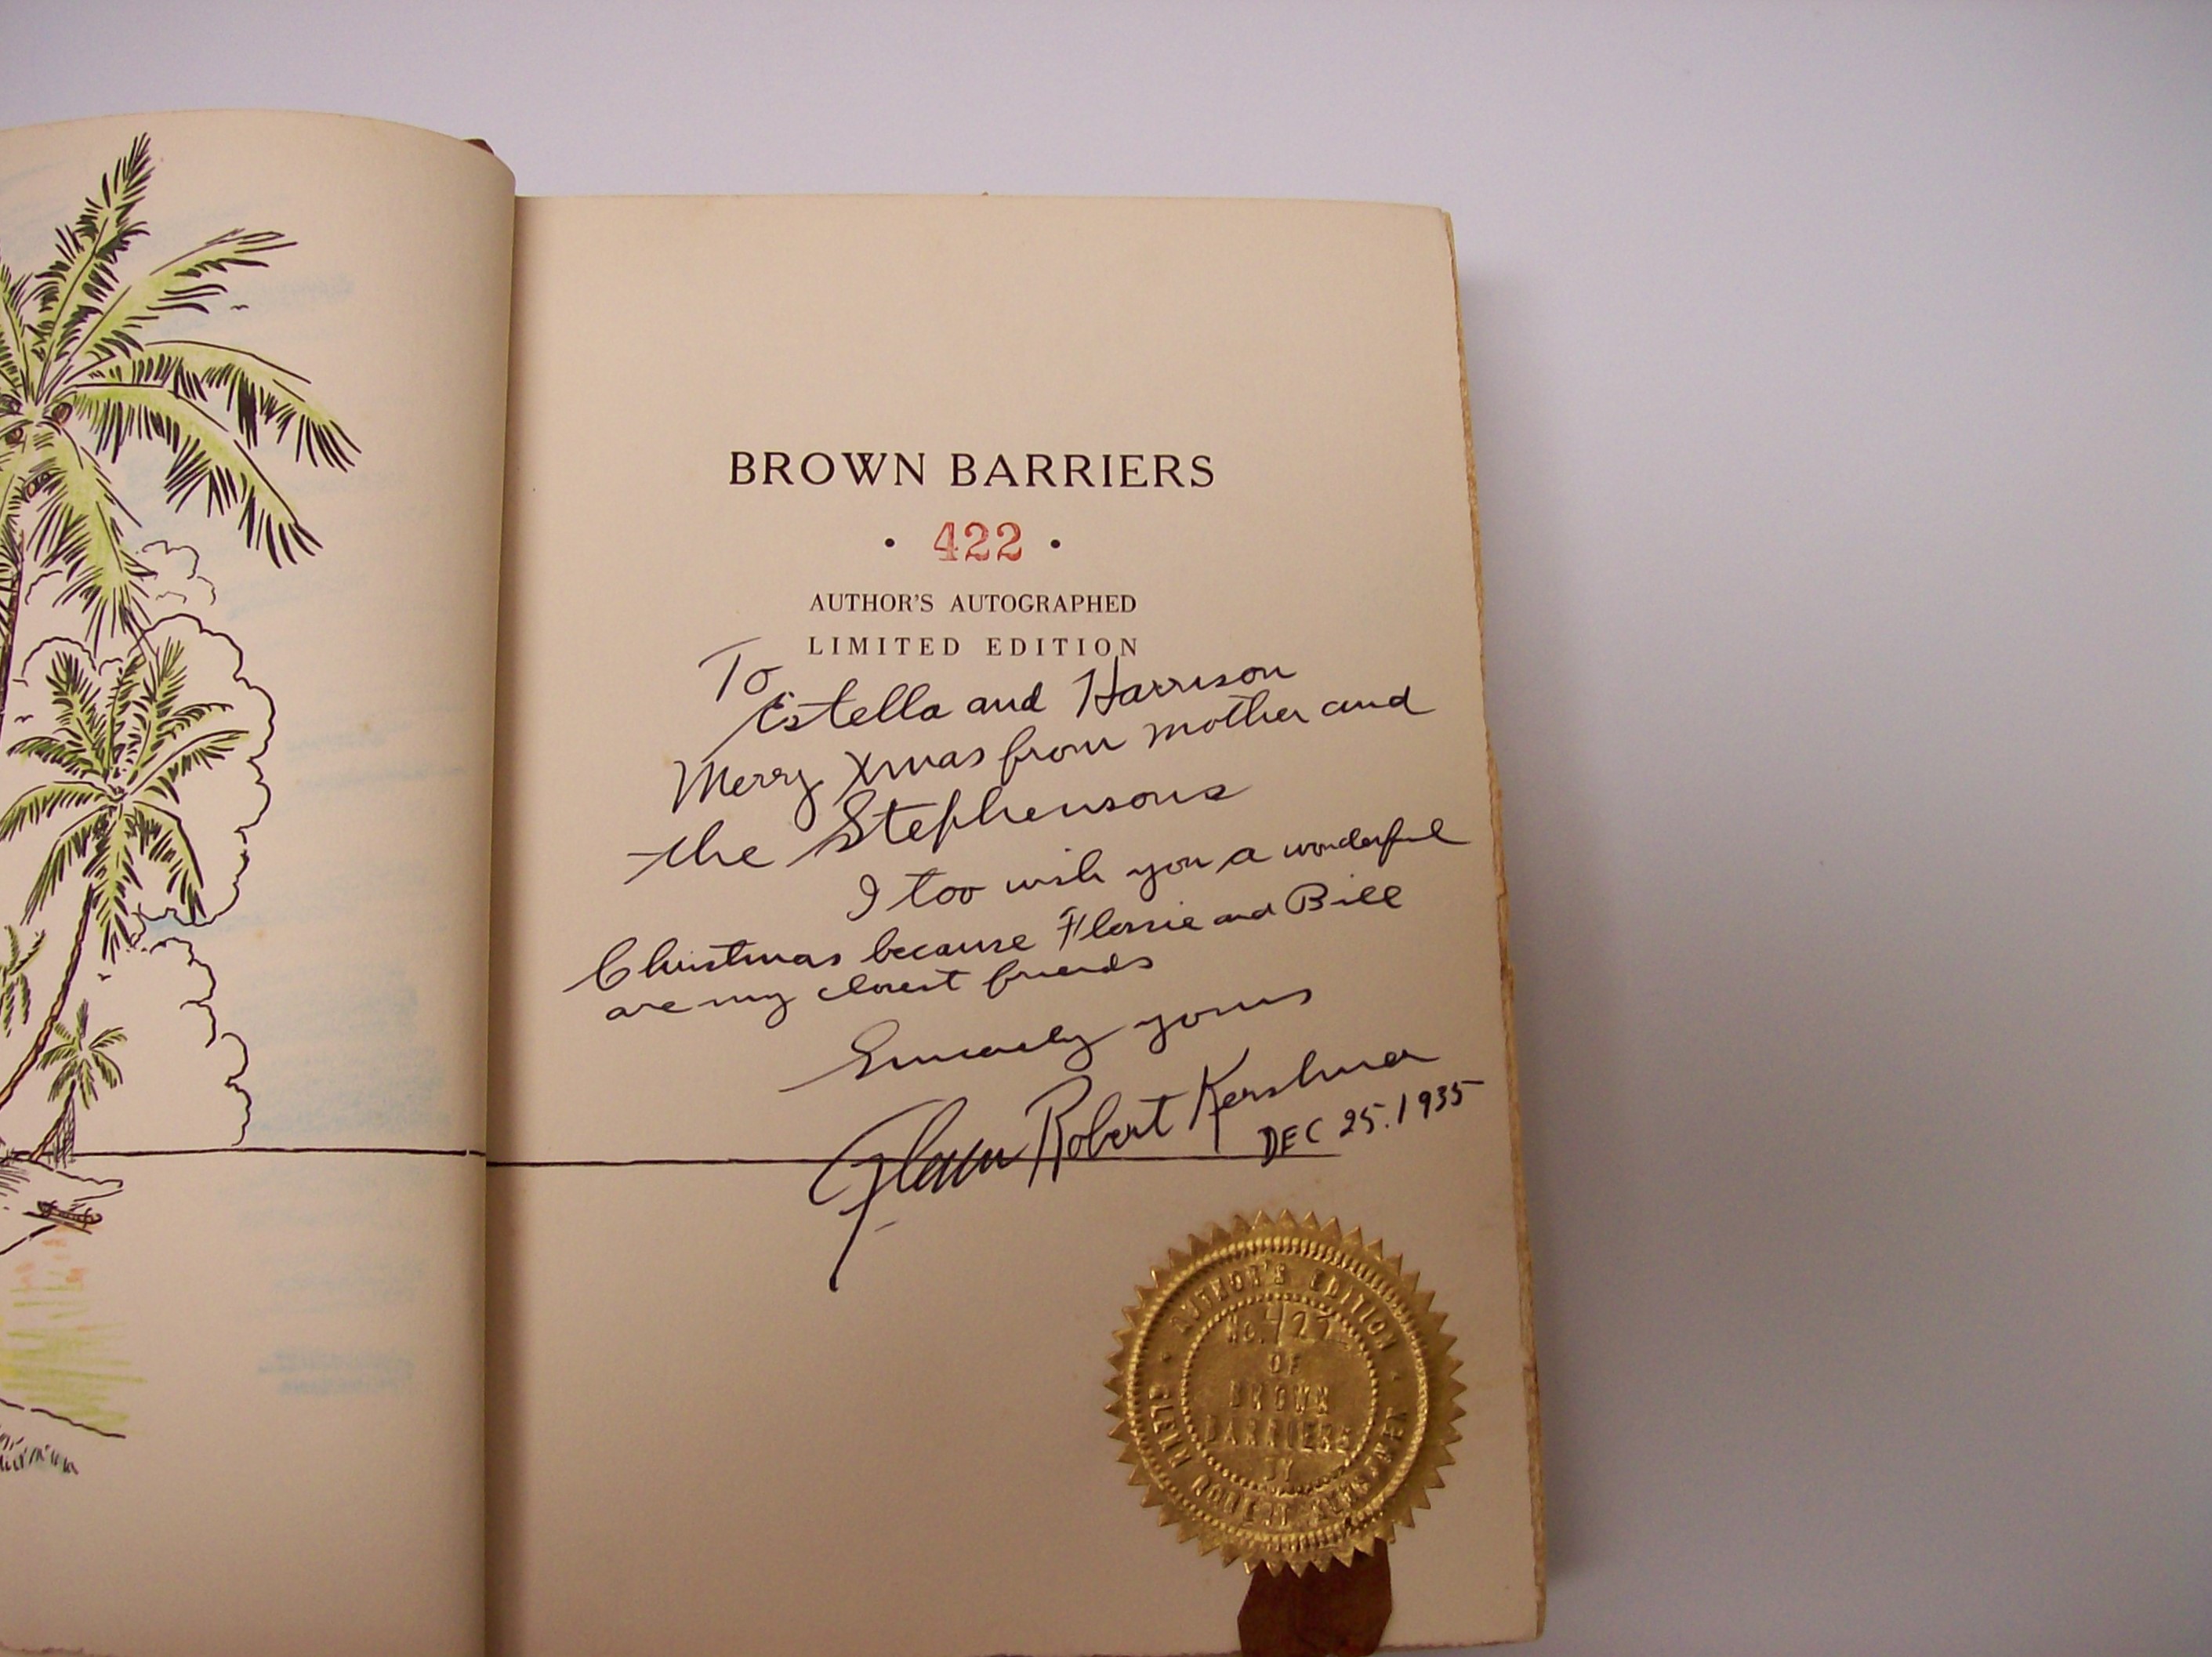 BROWN BARRIERS
• 422 •
AUTHOR'S AUTOGRAPHED
LIMITED EDITION
To
Estella and Harrison
Merry Xmas from mother and
the Stephensons
I too wish you a wonderful
Christmas because Flossie and Bill
are my closest friends
Sincerely yours
Glenn Robert Kershner
DEC 25. 1935
AUTHOR'S EDITION
No. 422
OF
BROWN
BARRIERS
BY
GLENN ROBERT KERSHNER